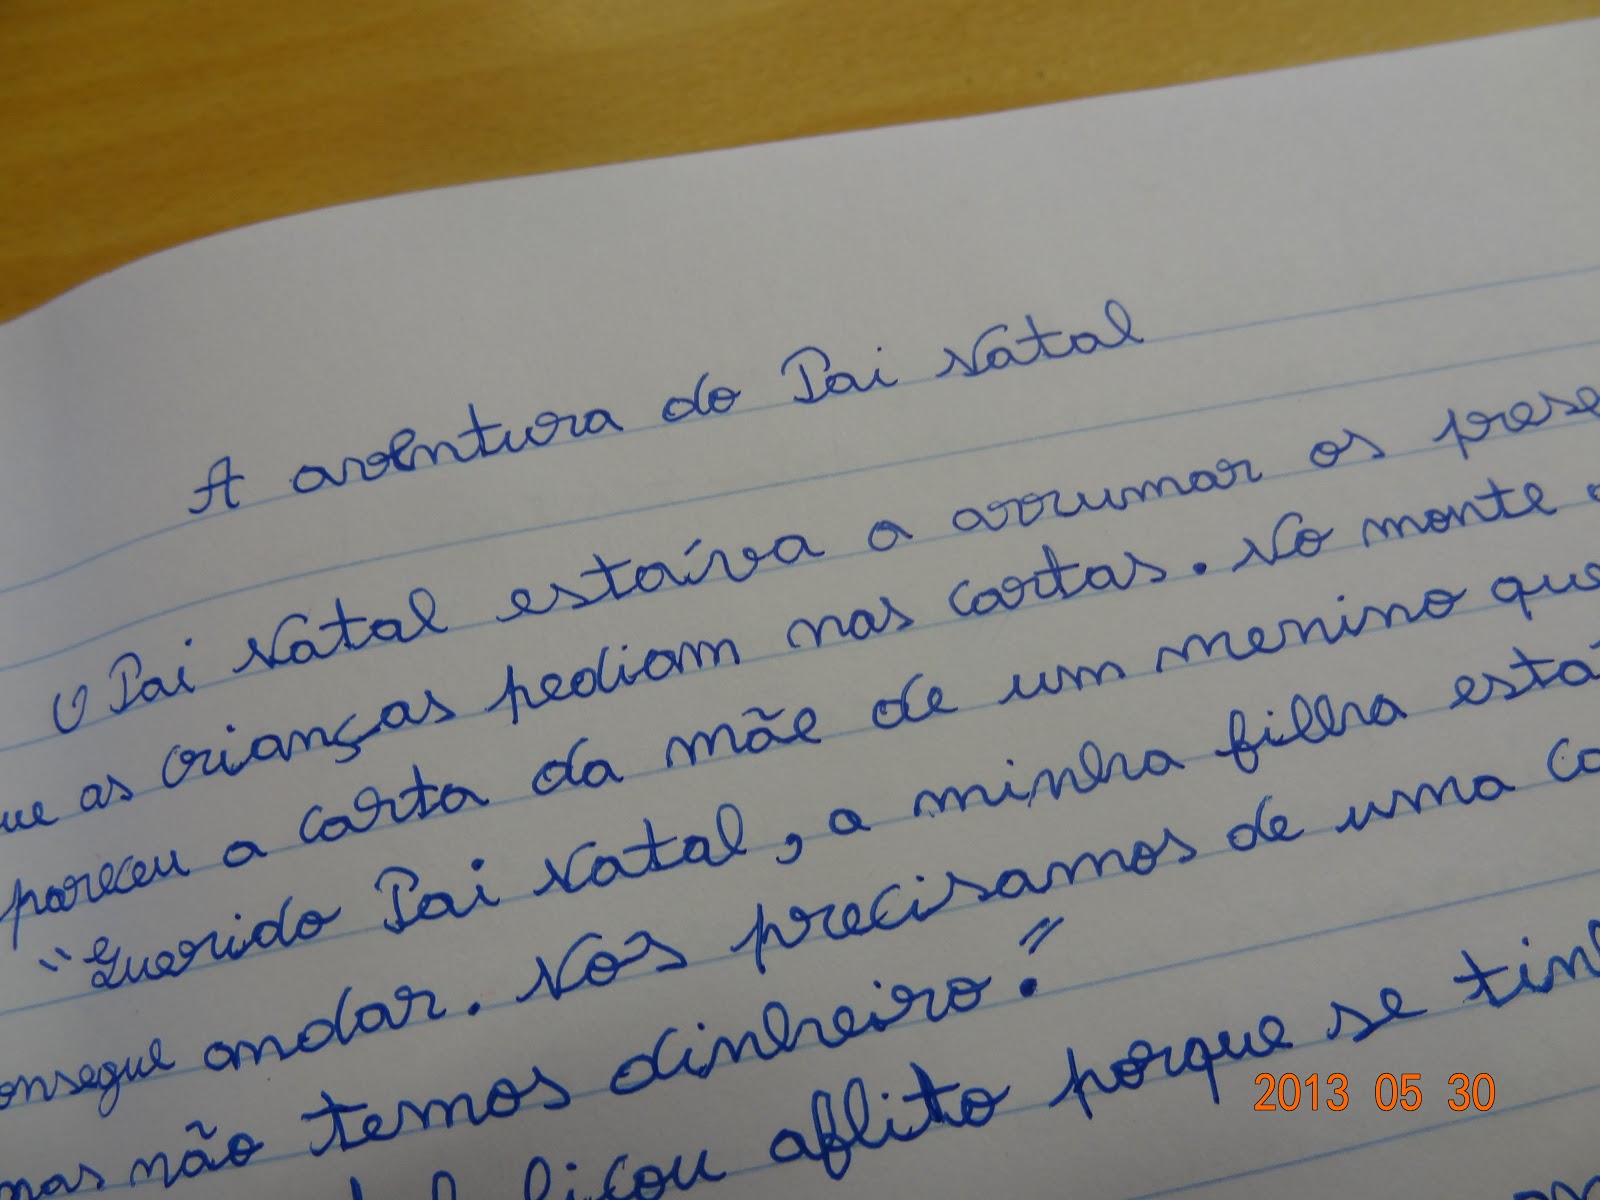 A aventura do Pai Natal
O Pai Natal estaíva a arrumar os prese
ue as crianças pediam nas cartas. No monte
pareceu a carta da mãe de um menino que
"Querido Pai Natal, a minha filha está
onsegue andar. Nós precisamos de uma ca
mas não temos dinheiro."
ficou aflito porque se tinh
2013 05 30